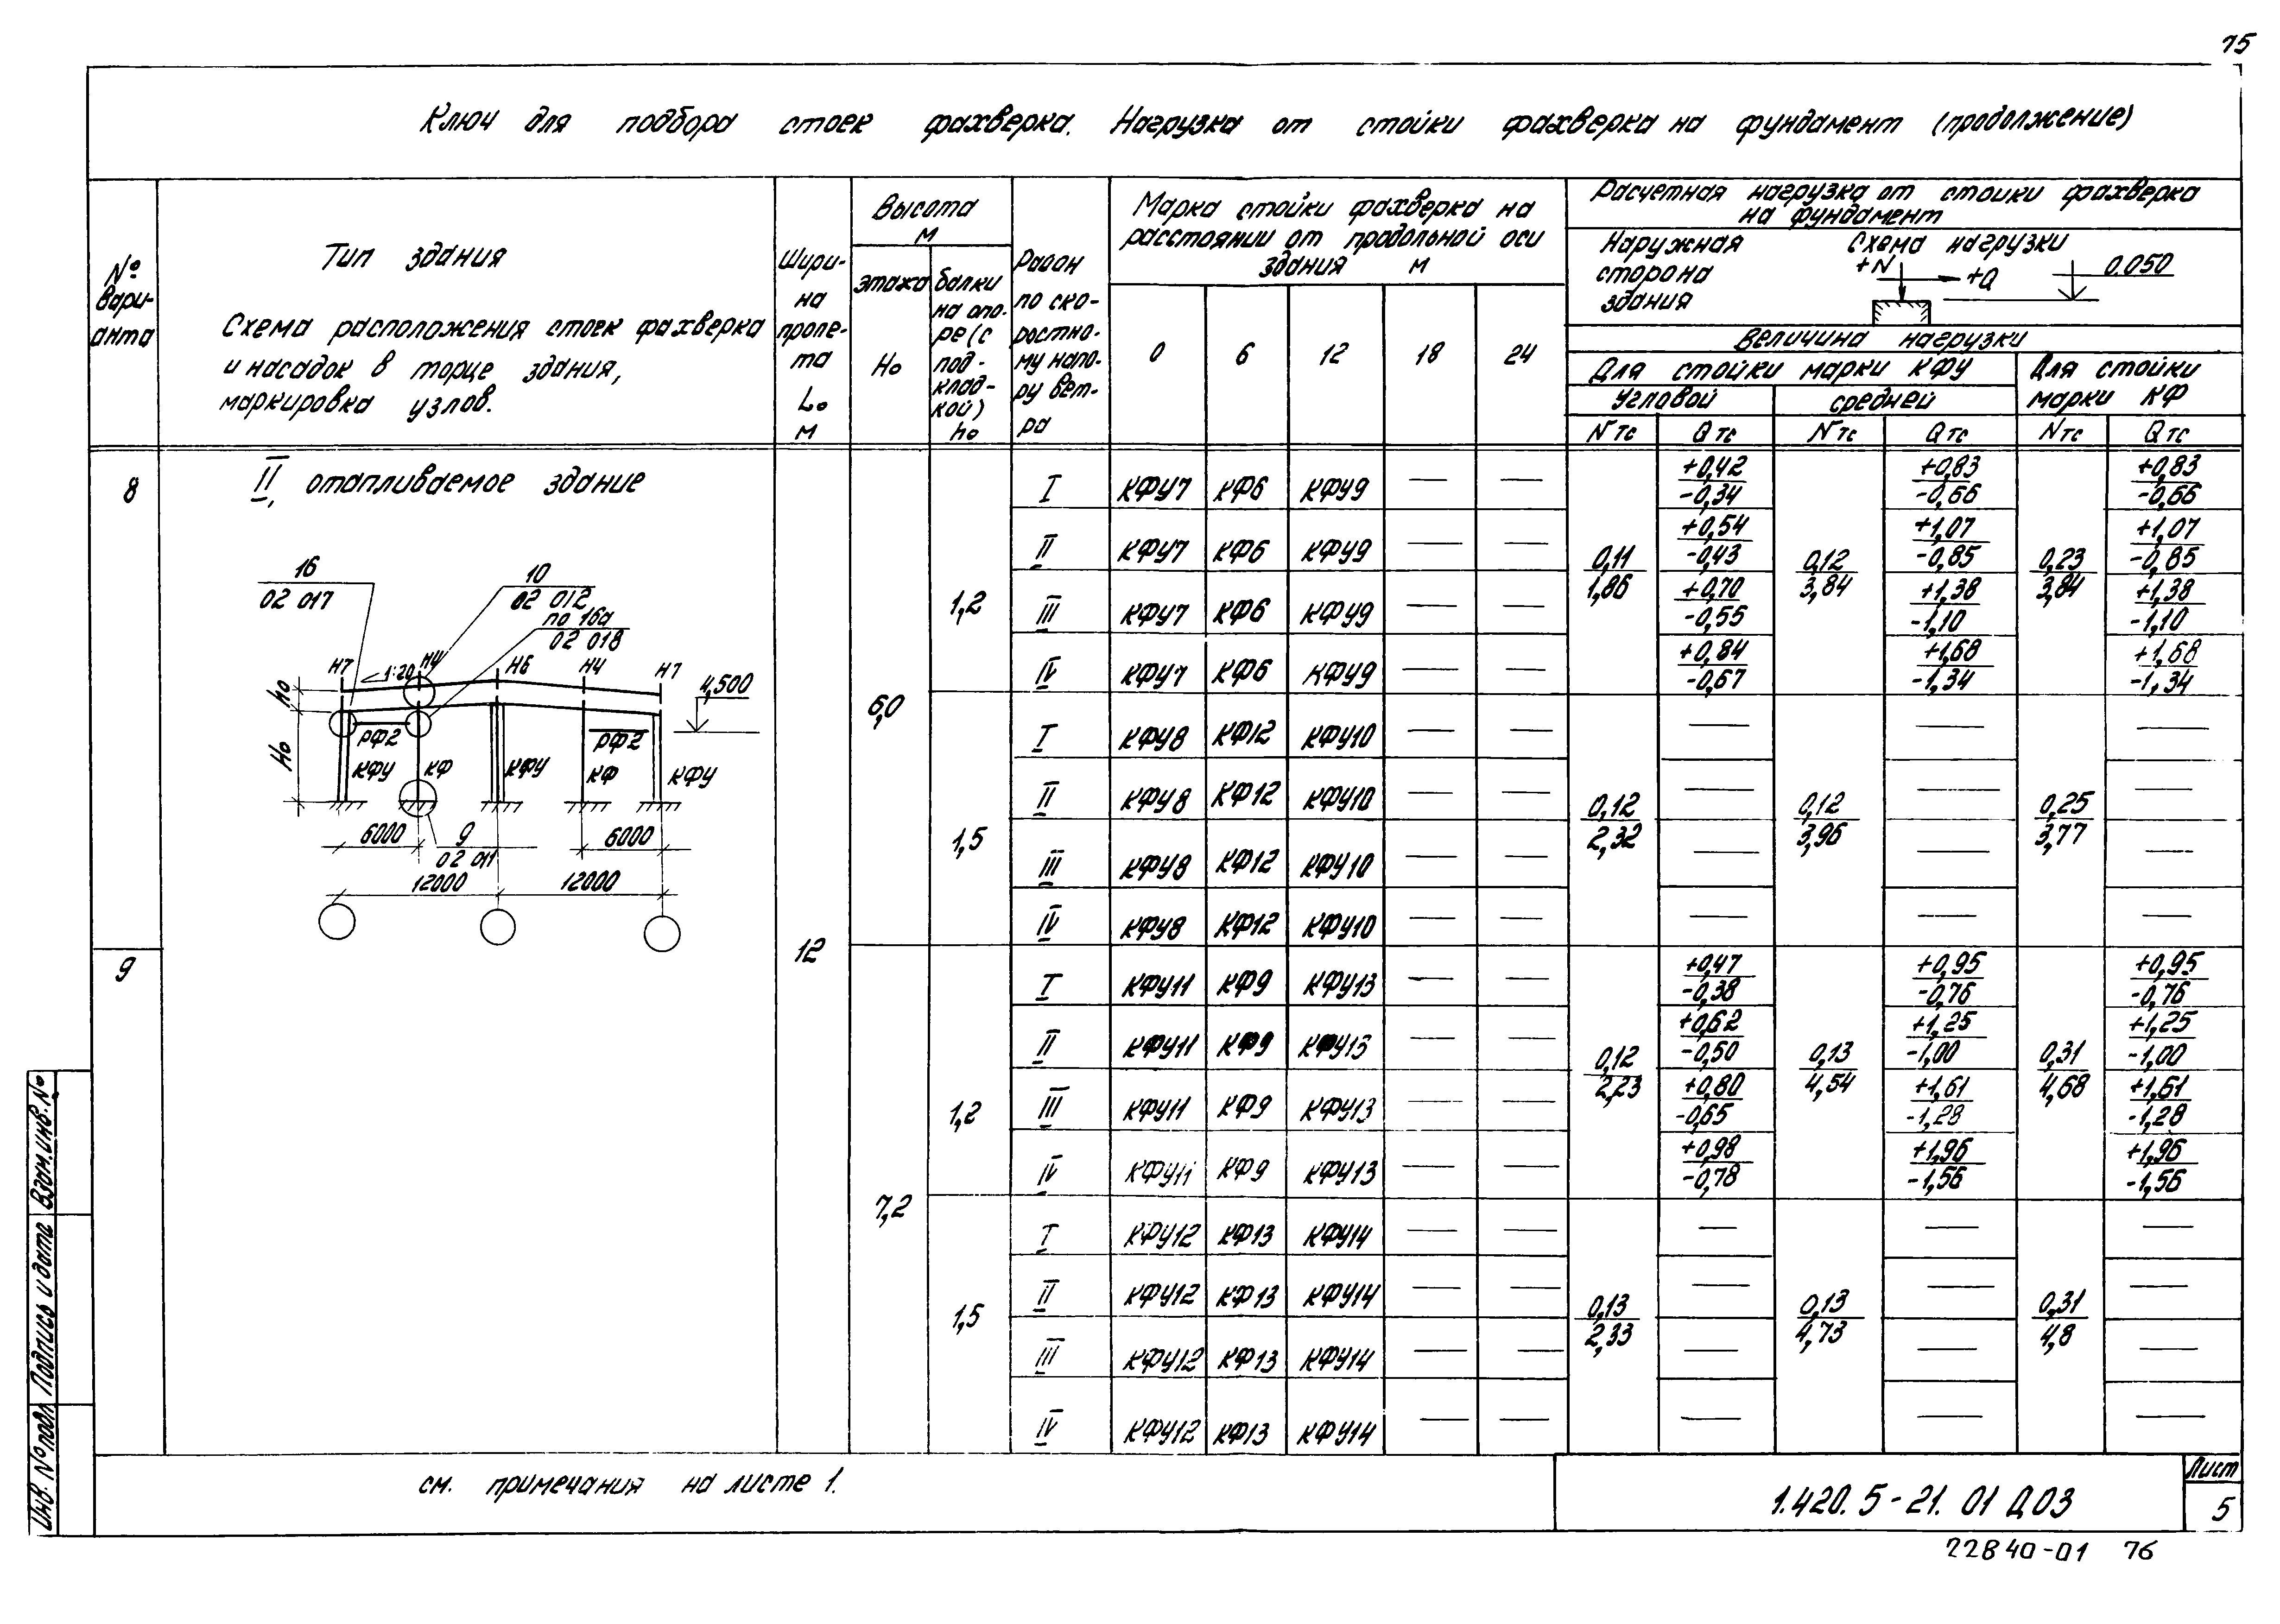 75
Ключ для подбора стоек фахверка. Нагрузка от стойки фахверка на фундамент (продолжение)
№ вари-анта
Тип здания
Схема расположения стоек фахверка
и насадок в торце здания,
маркировка узлов.
Шири-на проле-та L₀ м
Высота м
этажа H₀
балки на опо-ре (с под-клад-кой) h₀
Район по ско-ростно-му напо-ру вет-ра
Марка стойки фахверка на
расстоянии от продольной оси
здания м
0 6 12 18 24
Расчетная нагрузка от стойки фахверка
на фундамент
Наружная сторона здания
Схема нагрузки
+N +Q 0.050
Величина нагрузки
Для стойки марки КФУ
Для стойки марки КФ
Угловой средней
N тс Q тс N тс Q тс N тс Q тс
8
II, отапливаемое здание
16
02 017
10
02 012
по 16а
02 018
Н7 1:20 Н4 Н6 Н4 Н7
4,500
h₀
H₀
РФ2 РФ2
КФУ КФ КФУ КФ КФУ
6000 9 6000
02 011
12000 12000
12
6,0
1,2
I КФУ7 КФ6 КФУ9 — — +0,42 -0,34 +0,83 -0,66 +0,83 -0,66
II КФУ7 КФ6 КФУ9 — — +0,54 -0,43 +1,07 -0,85 +1,07 -0,85
0,11 1,86 0,12 3,84 0,23 3,84
III КФУ7 КФ6 КФУ9 — — +0,70 -0,55 +1,38 -1,10 +1,38 -1,10
IV КФУ7 КФ6 КФУ9 — — +0,84 -0,67 +1,68 -1,34 +1,68 -1,34
1,5
I КФУ8 КФ12 КФУ10 — — — — —
II КФУ8 КФ12 КФУ10 — — — — —
0,12 2,32 0,12 3,96 0,25 3,77
III КФУ8 КФ12 КФУ10 — — — — —
IV КФУ8 КФ12 КФУ10 — — — — —
9
7,2
1,2
I КФУ11 КФ9 КФУ13 — — +0,47 -0,38 +0,95 -0,76 +0,95 -0,76
II КФУ11 КФ9 КФУ13 — — +0,62 -0,50 +1,25 -1,00 +1,25 -1,00
0,12 2,23 0,13 4,54 0,31 4,68
III КФУ11 КФ9 КФУ13 — — +0,80 -0,65 +1,61 -1,28 +1,61 -1,28
IV КФУ11 КФ9 КФУ13 — — +0,98 -0,78 +1,96 -1,56 +1,96 -1,56
1,5
I КФУ12 КФ13 КФУ14 — — — — —
II КФУ12 КФ13 КФУ14 — — — — —
0,13 2,33 0,13 4,73 0,31 4,8
III КФУ12 КФ13 КФУ14 — — — — —
IV КФУ12 КФ13 КФУ14 — — — — —
см. примечания на листе 1.
1.420.5-21.01 Д03
Лист
5
22840-01 76
Инв. № подл Подпись и дата Взам.инв.№